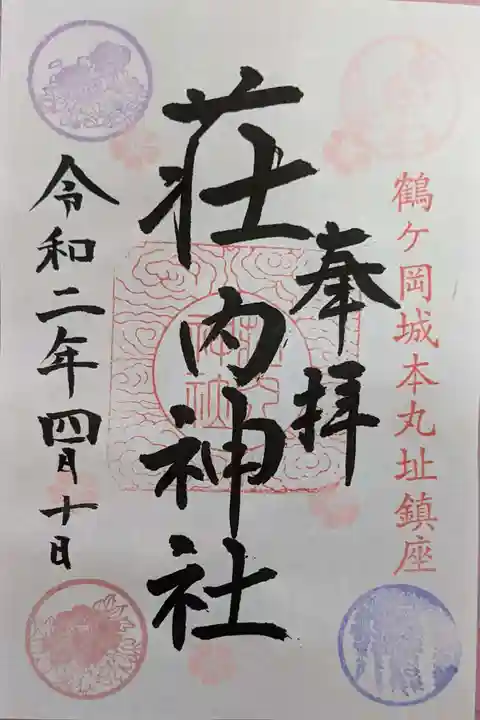 鶴ヶ岡城本丸址鎮座
奉拝
荘内神社
令和二年四月十日
荘内
神社